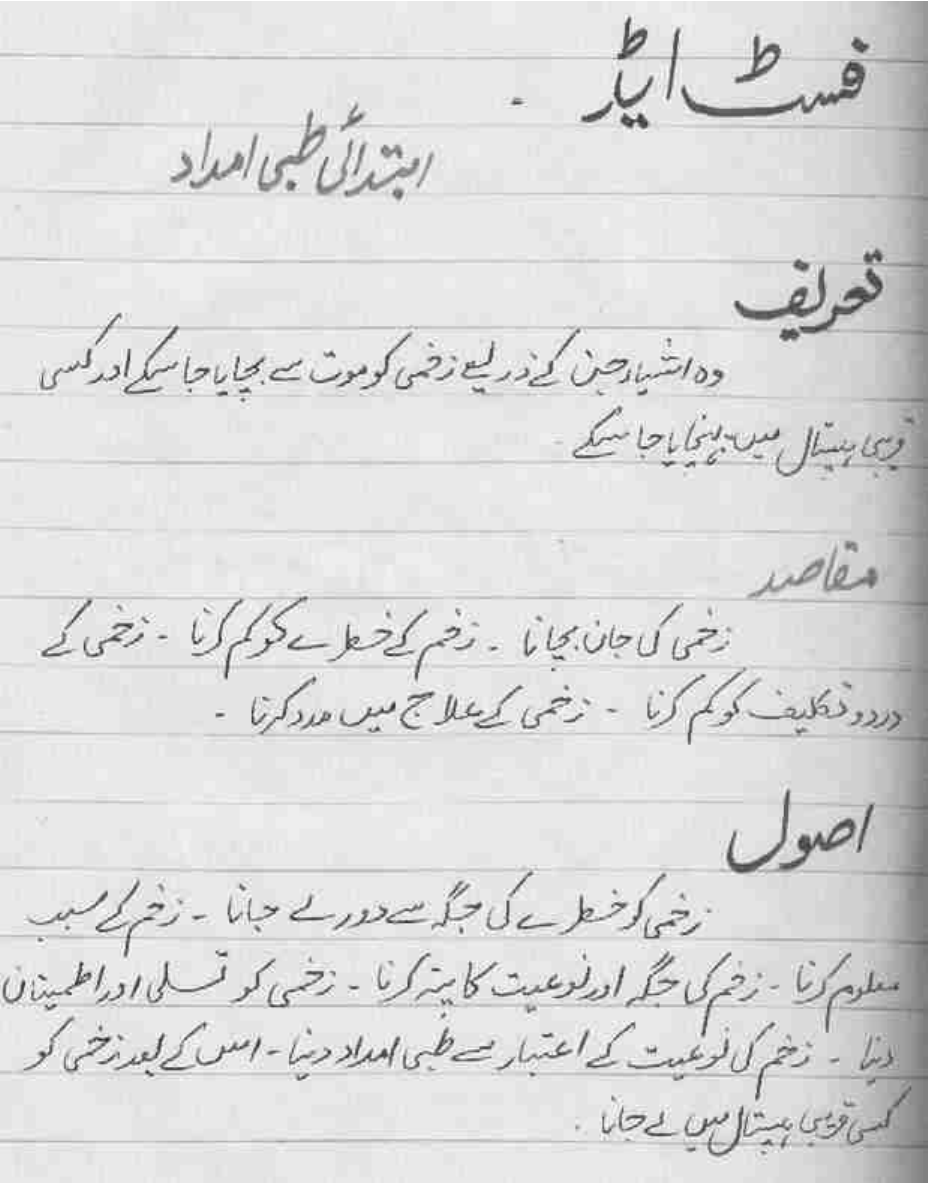 فسٹ ایڈ -
ابتدائی طبی امداد
تعریف
وہ اشیاء جن کے ذریعے زخمی کو موت سے بچایا جا سکے اور کسی
قریبی ہسپتال میں پہنچایا جا سکے -
مقاصد
زخمی کی جان بچانا - زخم کے خطرے کو کم کرنا - زخمی کے
درد و تکلیف کو کم کرنا - زخمی کے علاج میں مدد کرنا -
اصول
زخمی کو خطرے کی جگہ سے دور لے جانا - زخم کے سبب
معلوم کرنا - زخم کی جگہ اور نوعیت کا پتہ کرنا - زخمی کو تسلی اور اطمینان
دینا - زخم کی نوعیت کے اعتبار سے طبی امداد دینا - اس کے بعد زخمی کو
کسی قریبی ہسپتال میں لے جانا -